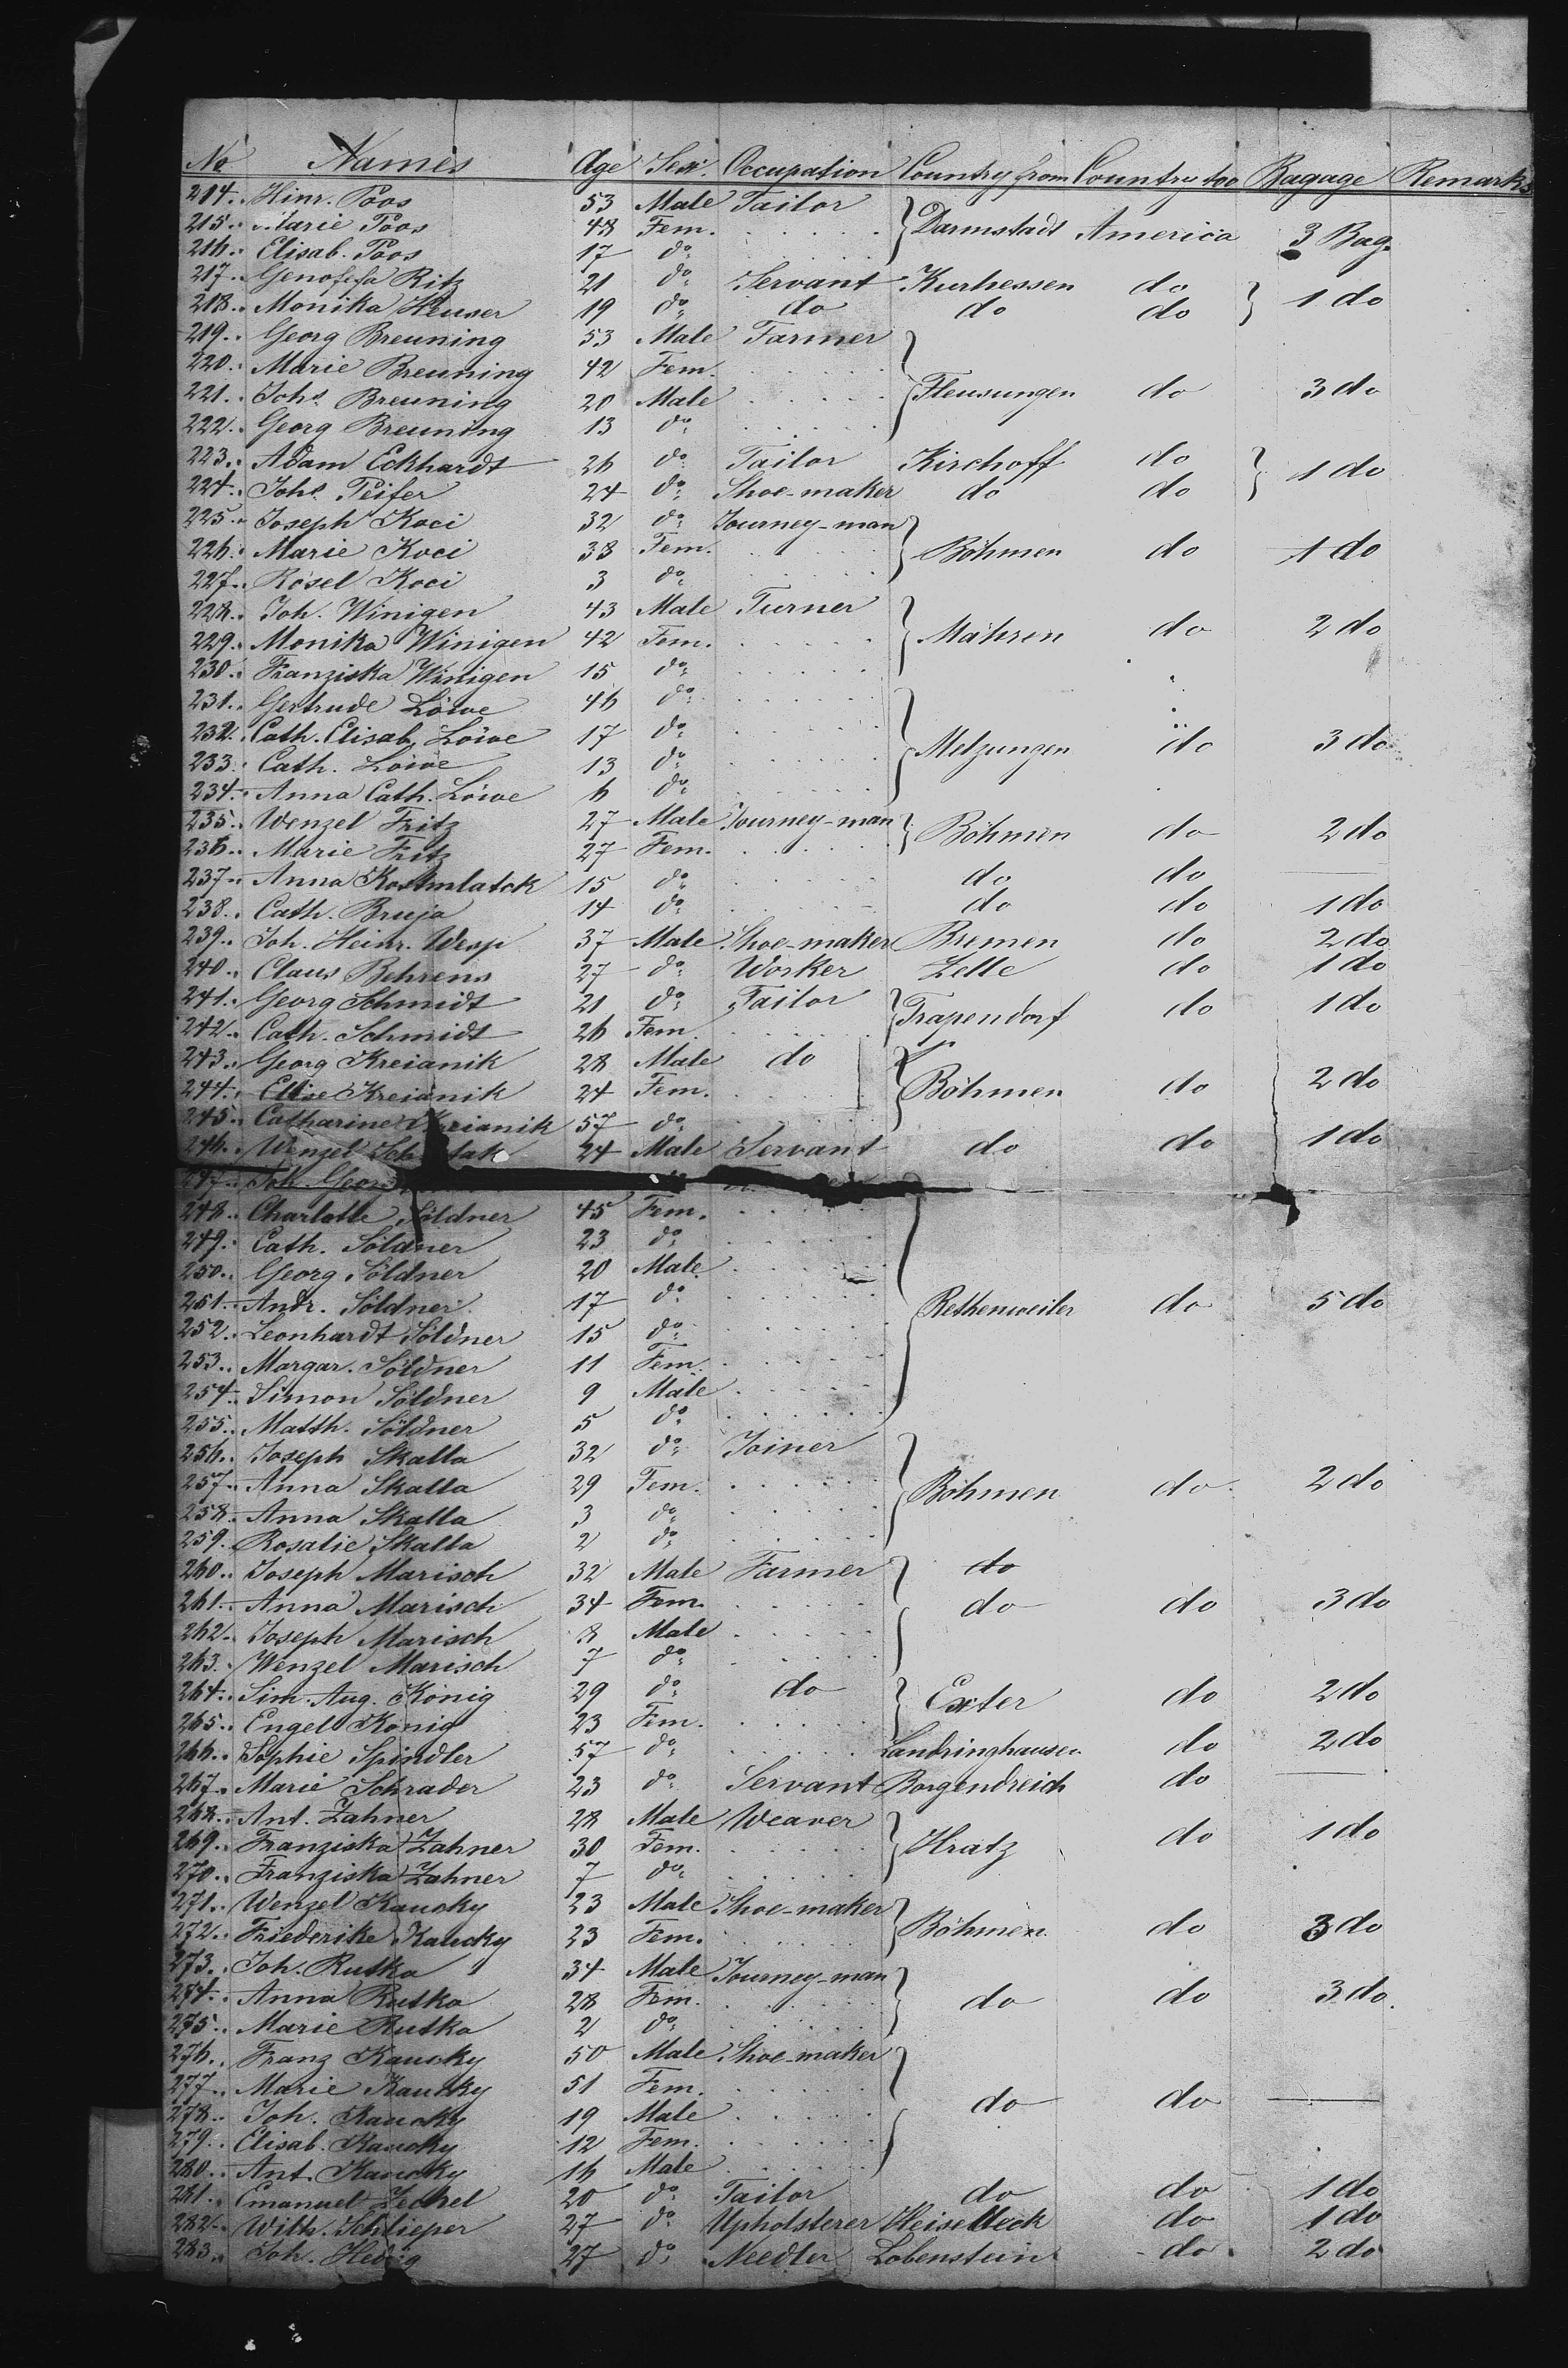 No Names Age Sex. Occupation Country from Country too Bagage Remarks
214. Hinr. Poos 53 Male Tailor
215. Marie Poos 48 Fem. Darmstadt America 3 Bag.
216. Elisab. Poos 17 do
217. Genofefa Ritz 21 do Servant Kurhessen do
218. Monika Heuser 19 do do do do 1 do
219. Georg Breuning 53 Male Farmer
220. Marie Breuning 42 Fem.
221. Johs. Breuning 20 Male Fleusungen do 3 do
222. Georg Breuning 13 do
223. Adam Eckhardt 26 do Tailor Kirchoff do
224. Johs. Peifer 24 do Shoe-maker do do 1 do
225. Joseph Koci 32 do Journey-man
226. Marie Koci 38 Fem. Böhmen do 1 do
227. Rosel Koci 3 do
228. Joh. Winigen 43 Male Turner
229. Monika Winigen 42 Fem. Mähren do 2 do
230. Franziska Winigen 15 do
231. Gertrude Löwe 46 do
232. Cath. Elisab. Löwe 17 do
233. Cath. Löwe 13 do Melzungen do 3 do
234. Anna Cath. Löwe 6 do
235. Wenzel Fritz 27 Male Journey-man
236. Marie Fritz 27 Fem. Böhmen do 2 do
237. Anna Kostmlatck 15 do do do
238. Cath. Bruja 14 do do do 1 do
239. Joh. Heinr. Wesp 37 Male Shoe-maker Bremen do 2 do
240. Claus Behrens 27 do Worker Zelle do 1 do
241. Georg Schmidt 21 do Tailor
242. Cath. Schmidt 26 Fem. Trapendorf do 1 do
243. Georg Kreianik 28 Male do
244. Elise Kreianik 24 Fem. Böhmen do 2 do
245. Catharine Kreianik 57 do
246. Wenzel 24 Male Servant do do 1 do
247. Joh. Georg
248. Charlotte Söldner 45 Fem.
249. Cath. Söldner 23 do
250. Georg Söldner 20 Male
251. Andr. Söldner 17 do Rethenweiler do 5 do
252. Leonhardt Söldner 15 do
253. Margar. Söldner 11 Fem.
254. Simon Söldner 9 Male
255. Matth. Söldner 5 do
256. Joseph Skalla 32 do Joiner
257. Anna Skalla 29 Fem. Böhmen do 2 do
258. Anna Skalla 3 do
259. Rosalie Skalla 2 do
260. Joseph Marisch 32 Male Farmer do
261. Anna Marisch 34 Fem. do do 3 do
262. Joseph Marisch 8 Male
263. Wenzel Marisch 7 do
264. Sim. Aug. König 29 do do Exter do 2 do
265. Engel König 23 Fem.
266. Sophie Spindler 57 do Landringhausen do 2 do
267. Marie Schrader 23 do Servant Borgendreich do
268. Ant. Zahner 28 Male Weaver
269. Franziska Zahner 30 Fem. Hratz do 1 do
270. Franziska Zahner 7 do
271. Wenzel Kaucky 23 Male Shoe-maker
272. Friederike Kaucky 23 Fem. Böhmen do 3 do
273. Joh. Rutka 34 Male Journey-man
274. Anna Rutka 28 Fem. do do 3 do
275. Marie Rutka 2 do
276. Franz Kaucky 50 Male Shoe-maker
277. Marie Kaucky 51 Fem.
278. Joh. Kaucky 19 Male do do
279. Elisab. Kaucky 12 Fem.
280. Ant. Kaucky 16 Male
281. Emanuel Zechel 20 do Tailor do do 1 do
282. Wilh. Schlieper 27 do Upholsterer Heiselbeck do 1 do
283. Joh. 27 do Needler Lobenstein do 2 do